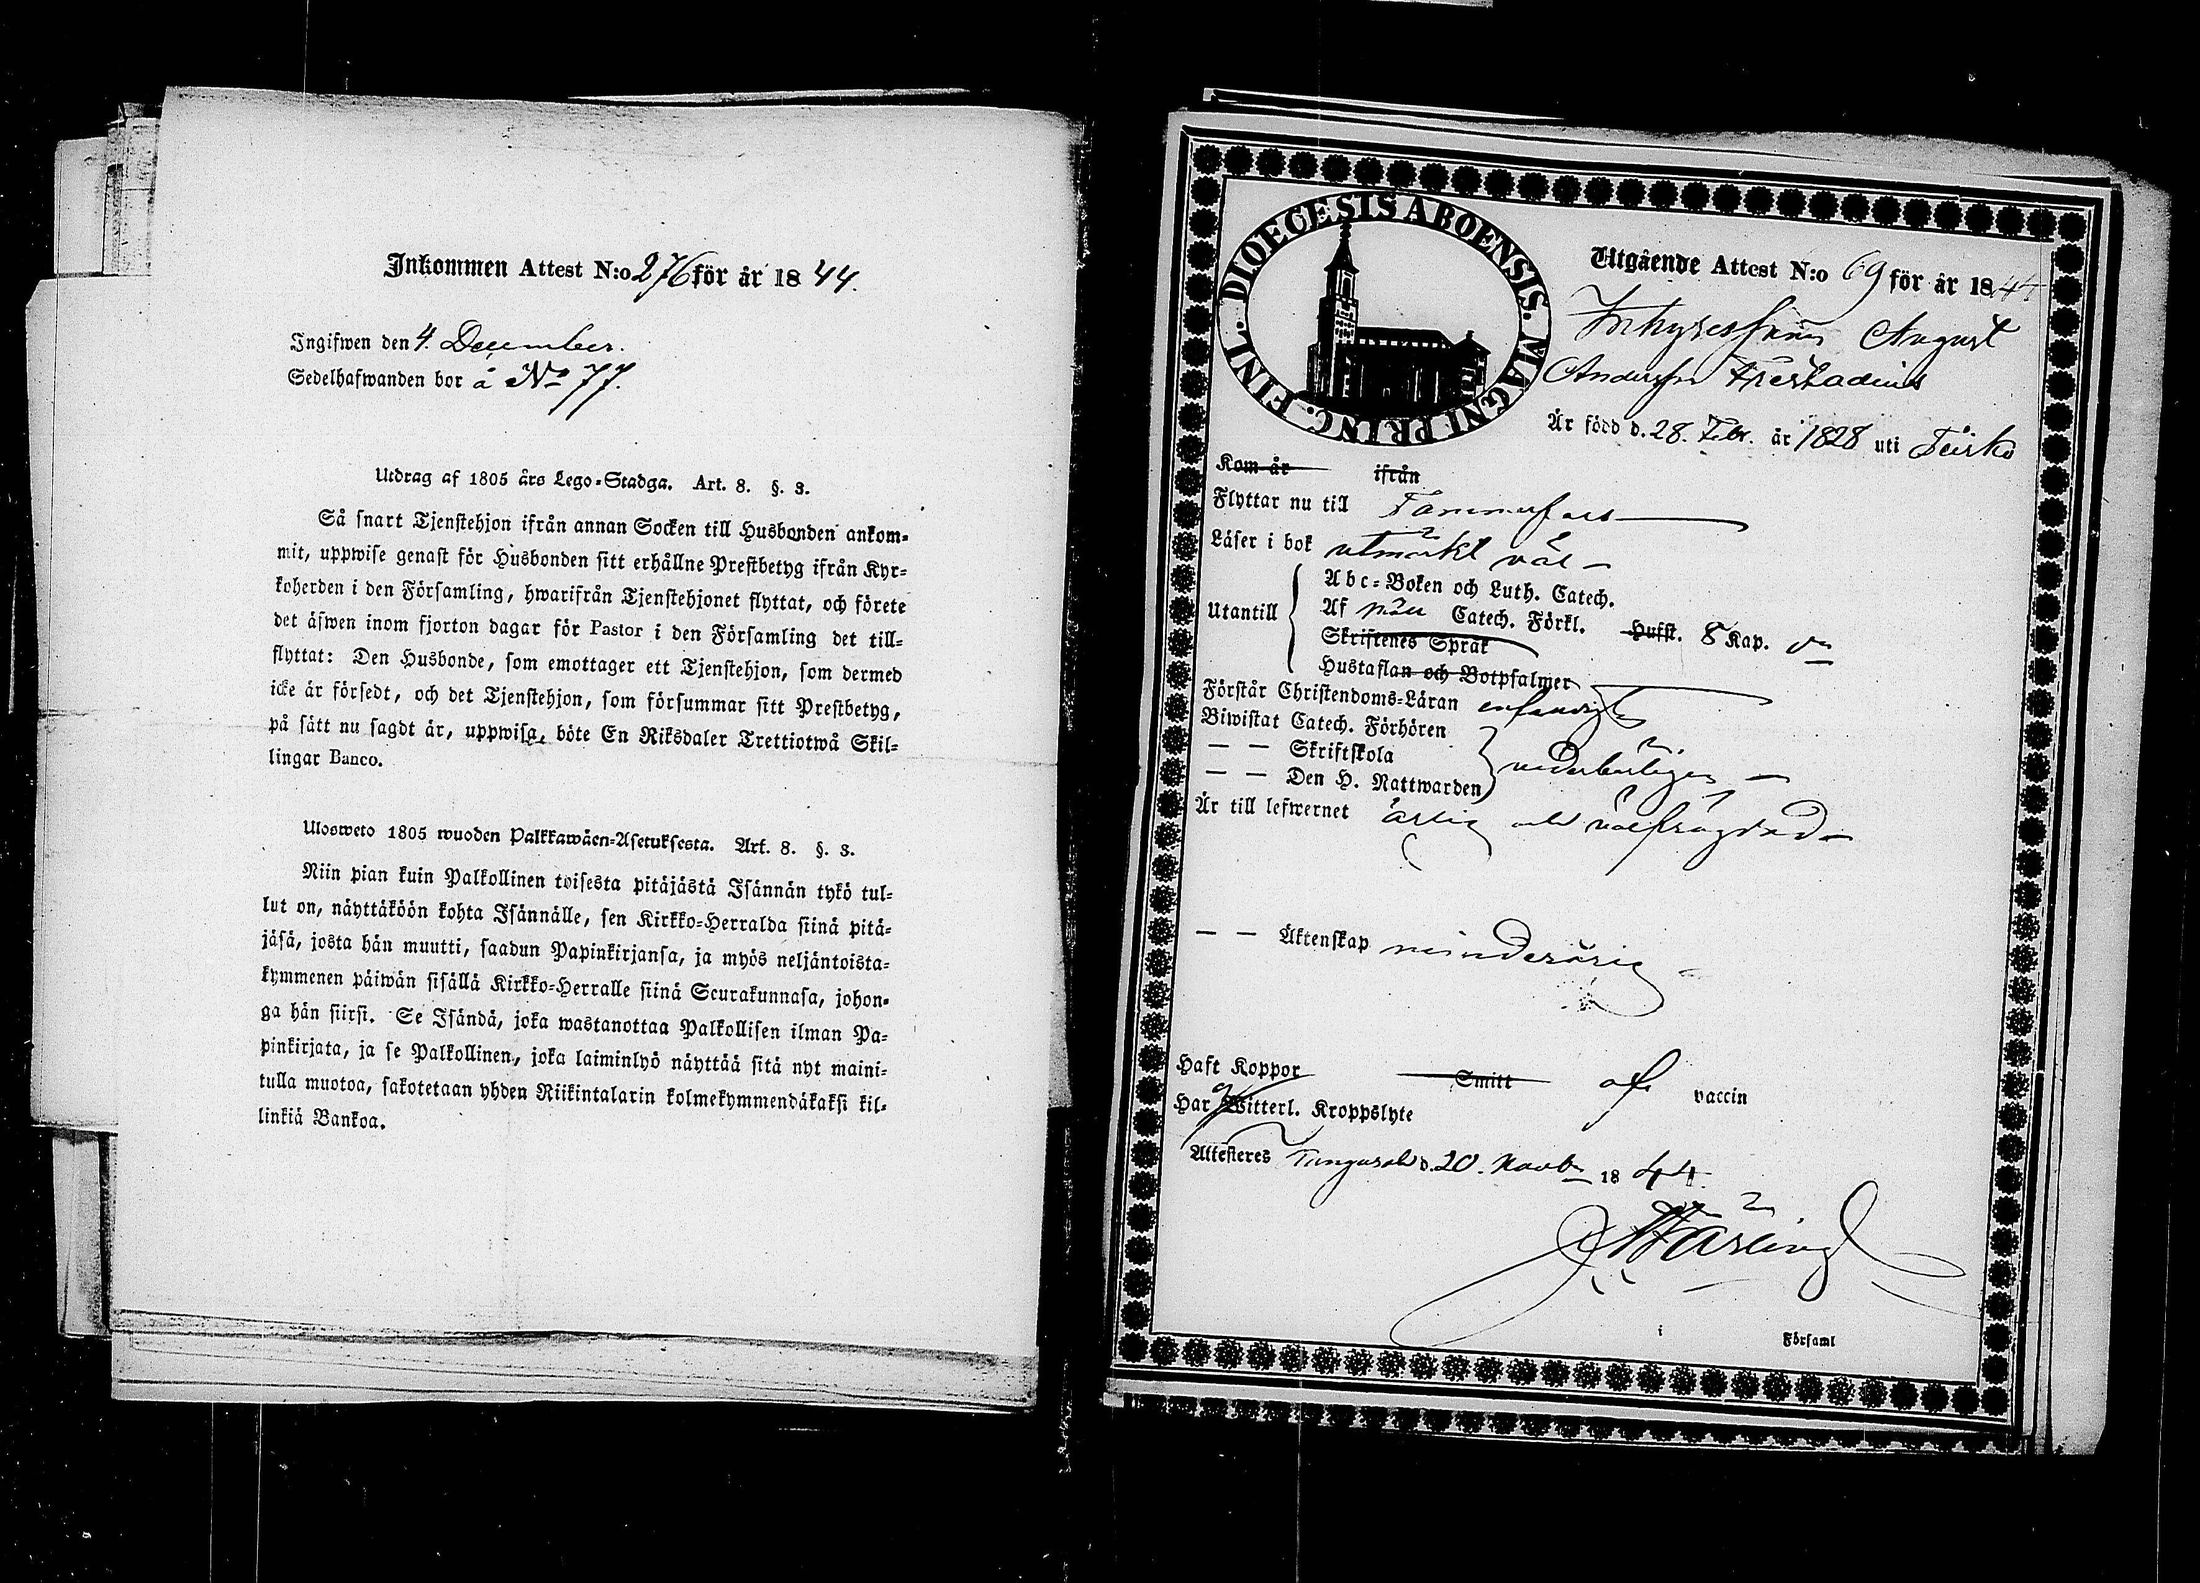 Inkommen Attest N:o 276 för år 1844.
Ingifwen den 4. December.
Sedelhafwanden bor å No 77.
Utdrag af 1805 års Lego-Stadga. Art. 8. §. 3.
Så snart Tjenstehjon ifrån annan Socken till Husbonden ankom-
mit, uppwise genast för Husbonden sitt erhållne Prestbetyg ifrån Kyr-
koherden i den Församling, hwarifrån Tjenstehjonet flyttat, och förete
det äfwen inom fjorton dagar för Pastor i den Församling det till-
flyttat: Den Husbonde, som emottager ett Tjenstehjon, som dermed
icke är försedt, och det Tjenstehjon, som försummar sitt Prestbetyg,
på sätt nu sagdt är, uppwisa, böte En Riksdaler Trettiotwå Skil-
lingar Banco.
Ulosweto 1805 wuoden Palkkawäen-Asetuksesta. Art. 8. §. 3.
Niin pian kuin Palkollinen toisesta pitäjästä Isännän tykö tul-
lut on, näyttäköön kohta Isännälle, sen Kirkko-Herralda siinä pitä-
jäsä, josta hän muutti, saadun Papinkirjansa, ja myös neljäntoista-
kymmenen päiwän sisällä Kirkko-Herralle siinä Seurakunnasa, johon-
ga hän siirsi. Se Isändä, joka wastanottaa Palkollisen ilman Pa-
pinkirjata, ja se Palkollinen, joka laiminlyö näyttää sitä nyt maini-
tulla muotoa, sakotetaan yhden Riikintalarin kolmekymmendäkaksi kil-
linkiä Bankoa.
DIOECESIS ABOENSIS. MAGNI PRINC. FINL.
Utgående Attest N:o 69 för år 1844
August
Andersson
Är född d. 28. Febr. år 1828 uti Teisko
Kom år ifrån
Flyttar nu till Tammerfors
Läser i bok utmärkt väl
Abc-Boken och Luth. Catech.
Utantill Af Catech. Förkl. Hufst. 8 Kap.
Skriftenes Språk
Hustaflan och Botpsalmer
Förstår Christendoms-Läran enfaldigt
Biwistat Catech. Förhören
— — Skriftskola vederbörligen
— — Den H. Nattwarden
Är till lefwernet ärlig och välfrägdad
— — Äktenskap minderårig
Haft Koppor Smitt af vaccin
Har ej Witterl. Kroppslyte
Attesteres d. 20. Novbr 1844.
i Församl